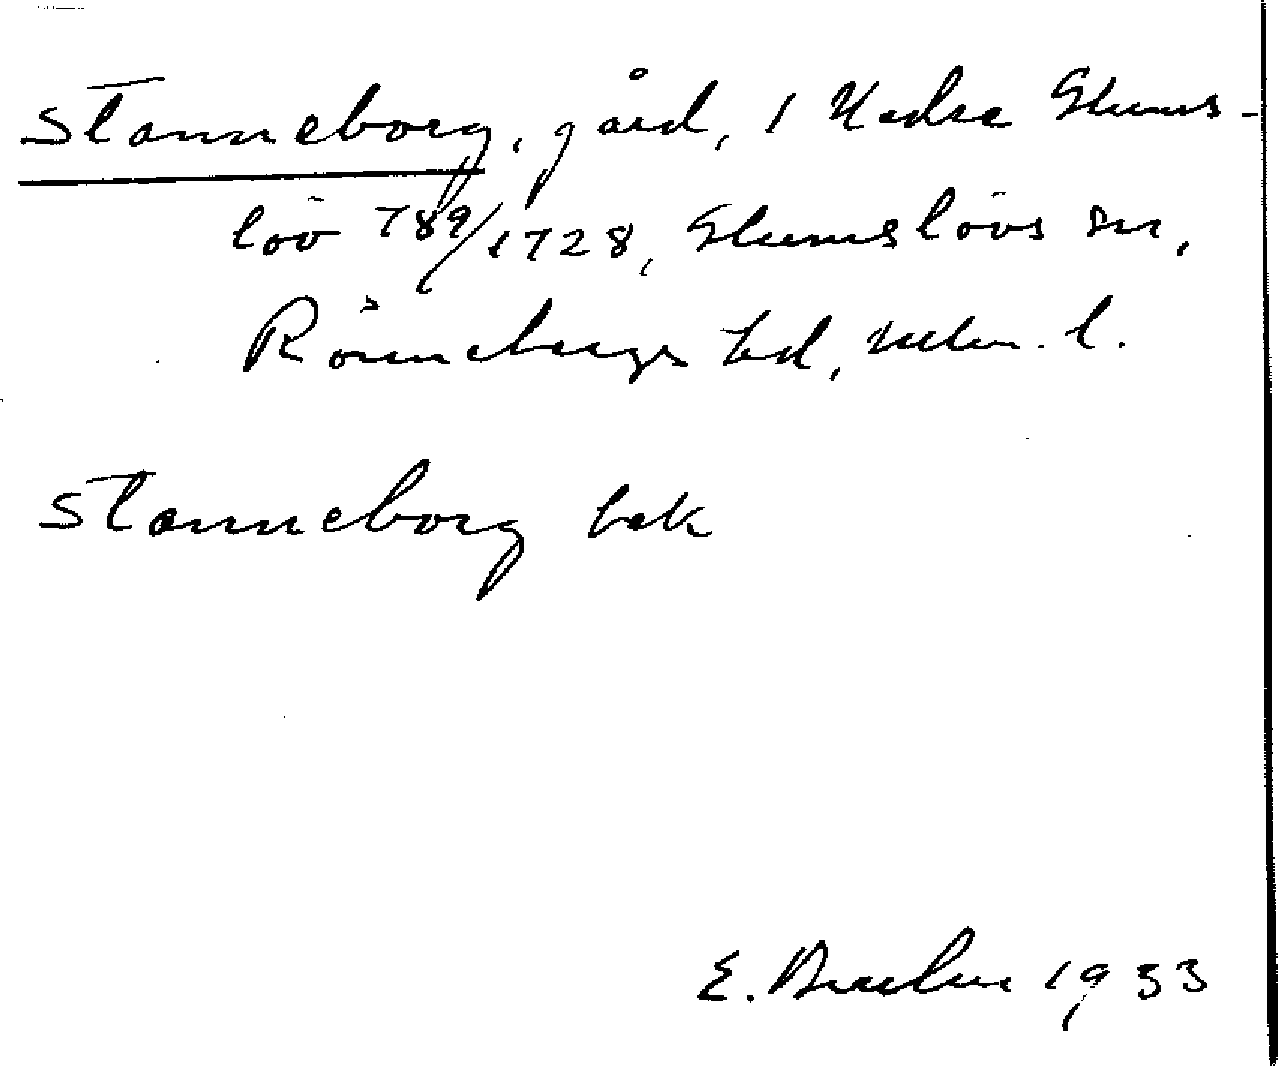 Stanneborg, gård, 1 Nedre Glums-
löv 789/1728, Glumslövs sn,
Rönnebergs hd, Mlm. l.
Stanneborg bek
E. 1933